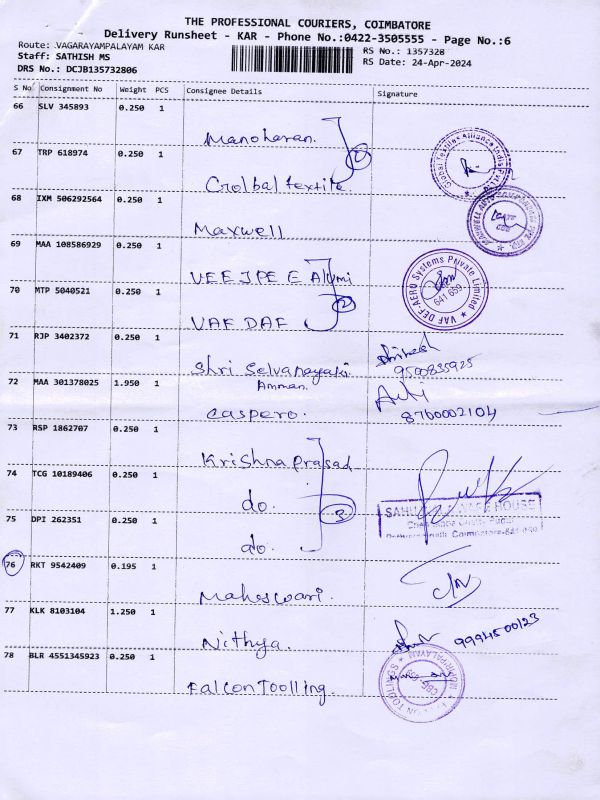 THE PROFESSIONAL COURIERS, COIMBATORE
Delivery Runsheet - KAR - Phone No.:0422-3505555 - Page No.:6
Route: VAGARAYAMPALAYAM KAR
Staff: SATHISH MS
DRS No.: DCJB135732806
RS No.: 1357328
RS Date: 24-Apr-2024
S No Consignment No Weight PCS Consignee Details Signature
66 SLV 345893 0.250 1
Manoharan.
67 TRP 618974 0.250 1
Crolbal textile
68 IXM 506292564 0.250 1
Maxwell
69 MAA 108586929 0.250 1
VEEJPEE Alumi
70 MTP 5040521 0.250 1
VAF DAF
VAF DEF-AERO Systems Private Limited
641 659
71 RJP 3402372 0.250 1
Shri Selvanayaki
Amman
9500835925
72 MAA 301378025 1.950 1
caspero.
8760002104
73 RSP 1862707 0.250 1
Krishna prasad
74 TCG 10189406 0.250 1
do.
75 DPI 262351 0.250 1
do.
3
76 RKT 9542409 0.195 1
Maheswari.
77 KLK 8103104 1.250 1
Nithya.
9994500123
78 BLR 4551345923 0.250 1
Falcon Toolling.